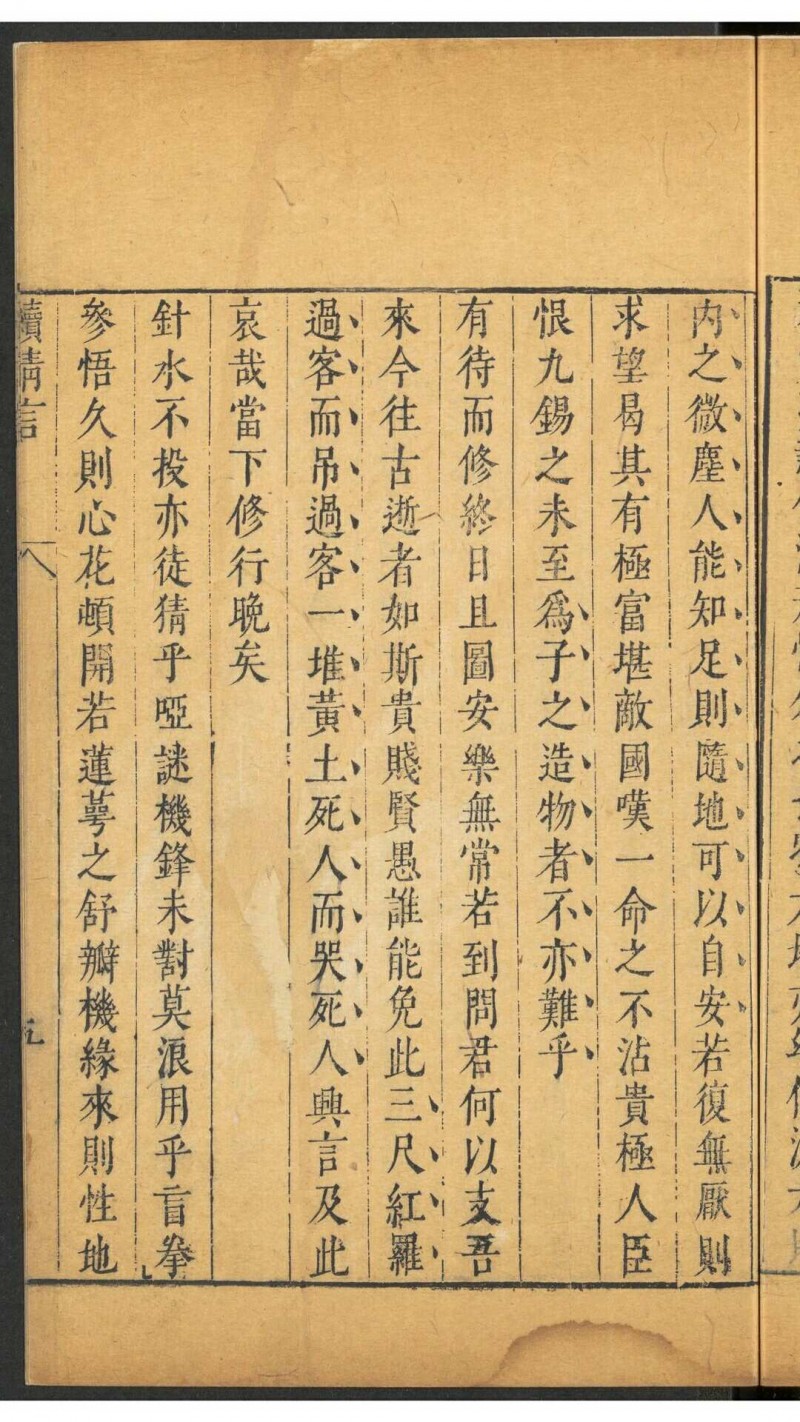 内之微塵人能知足則隨地可以自安若復無厭則
求望曷其有極富堪敵國嘆一命之不沾貴極人臣
恨九錫之未至爲子之造物者不亦難乎
有待而修終日且圖安樂無常若到問君何以支吾
來今往古逝者如斯貴賤賢愚誰能免此三尺紅羅
過客而吊過客一堆黃土死人而哭死人興言及此
哀哉當下修行晚矣
針水不投亦徒猜乎啞謎機鋒未對莫浪用乎盲拳
參悟久則心花頓開若蓮萼之舒瓣機緣來則性地
續清言
五